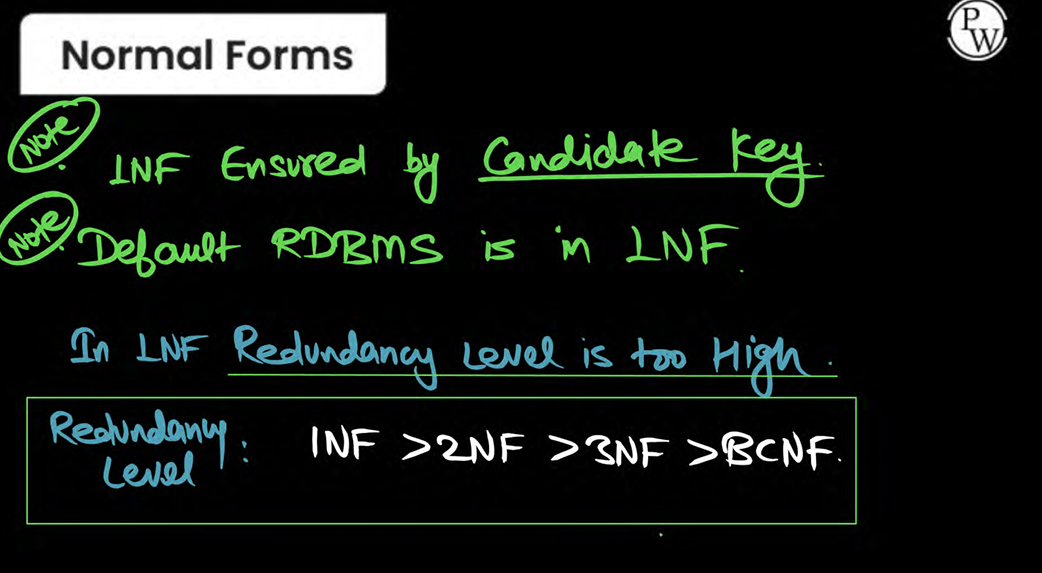 Normal Forms
PW
Note
1NF Ensured by Candidate Key.
Note
Default RDBMS is in 1NF.
In 1NF Redundancy Level is too High.
Redundancy Level: 1NF > 2NF > 3NF > BCNF.